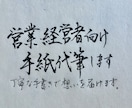 営業経営者向け
手紙代筆します
丁寧な手書きで想いを届けます。